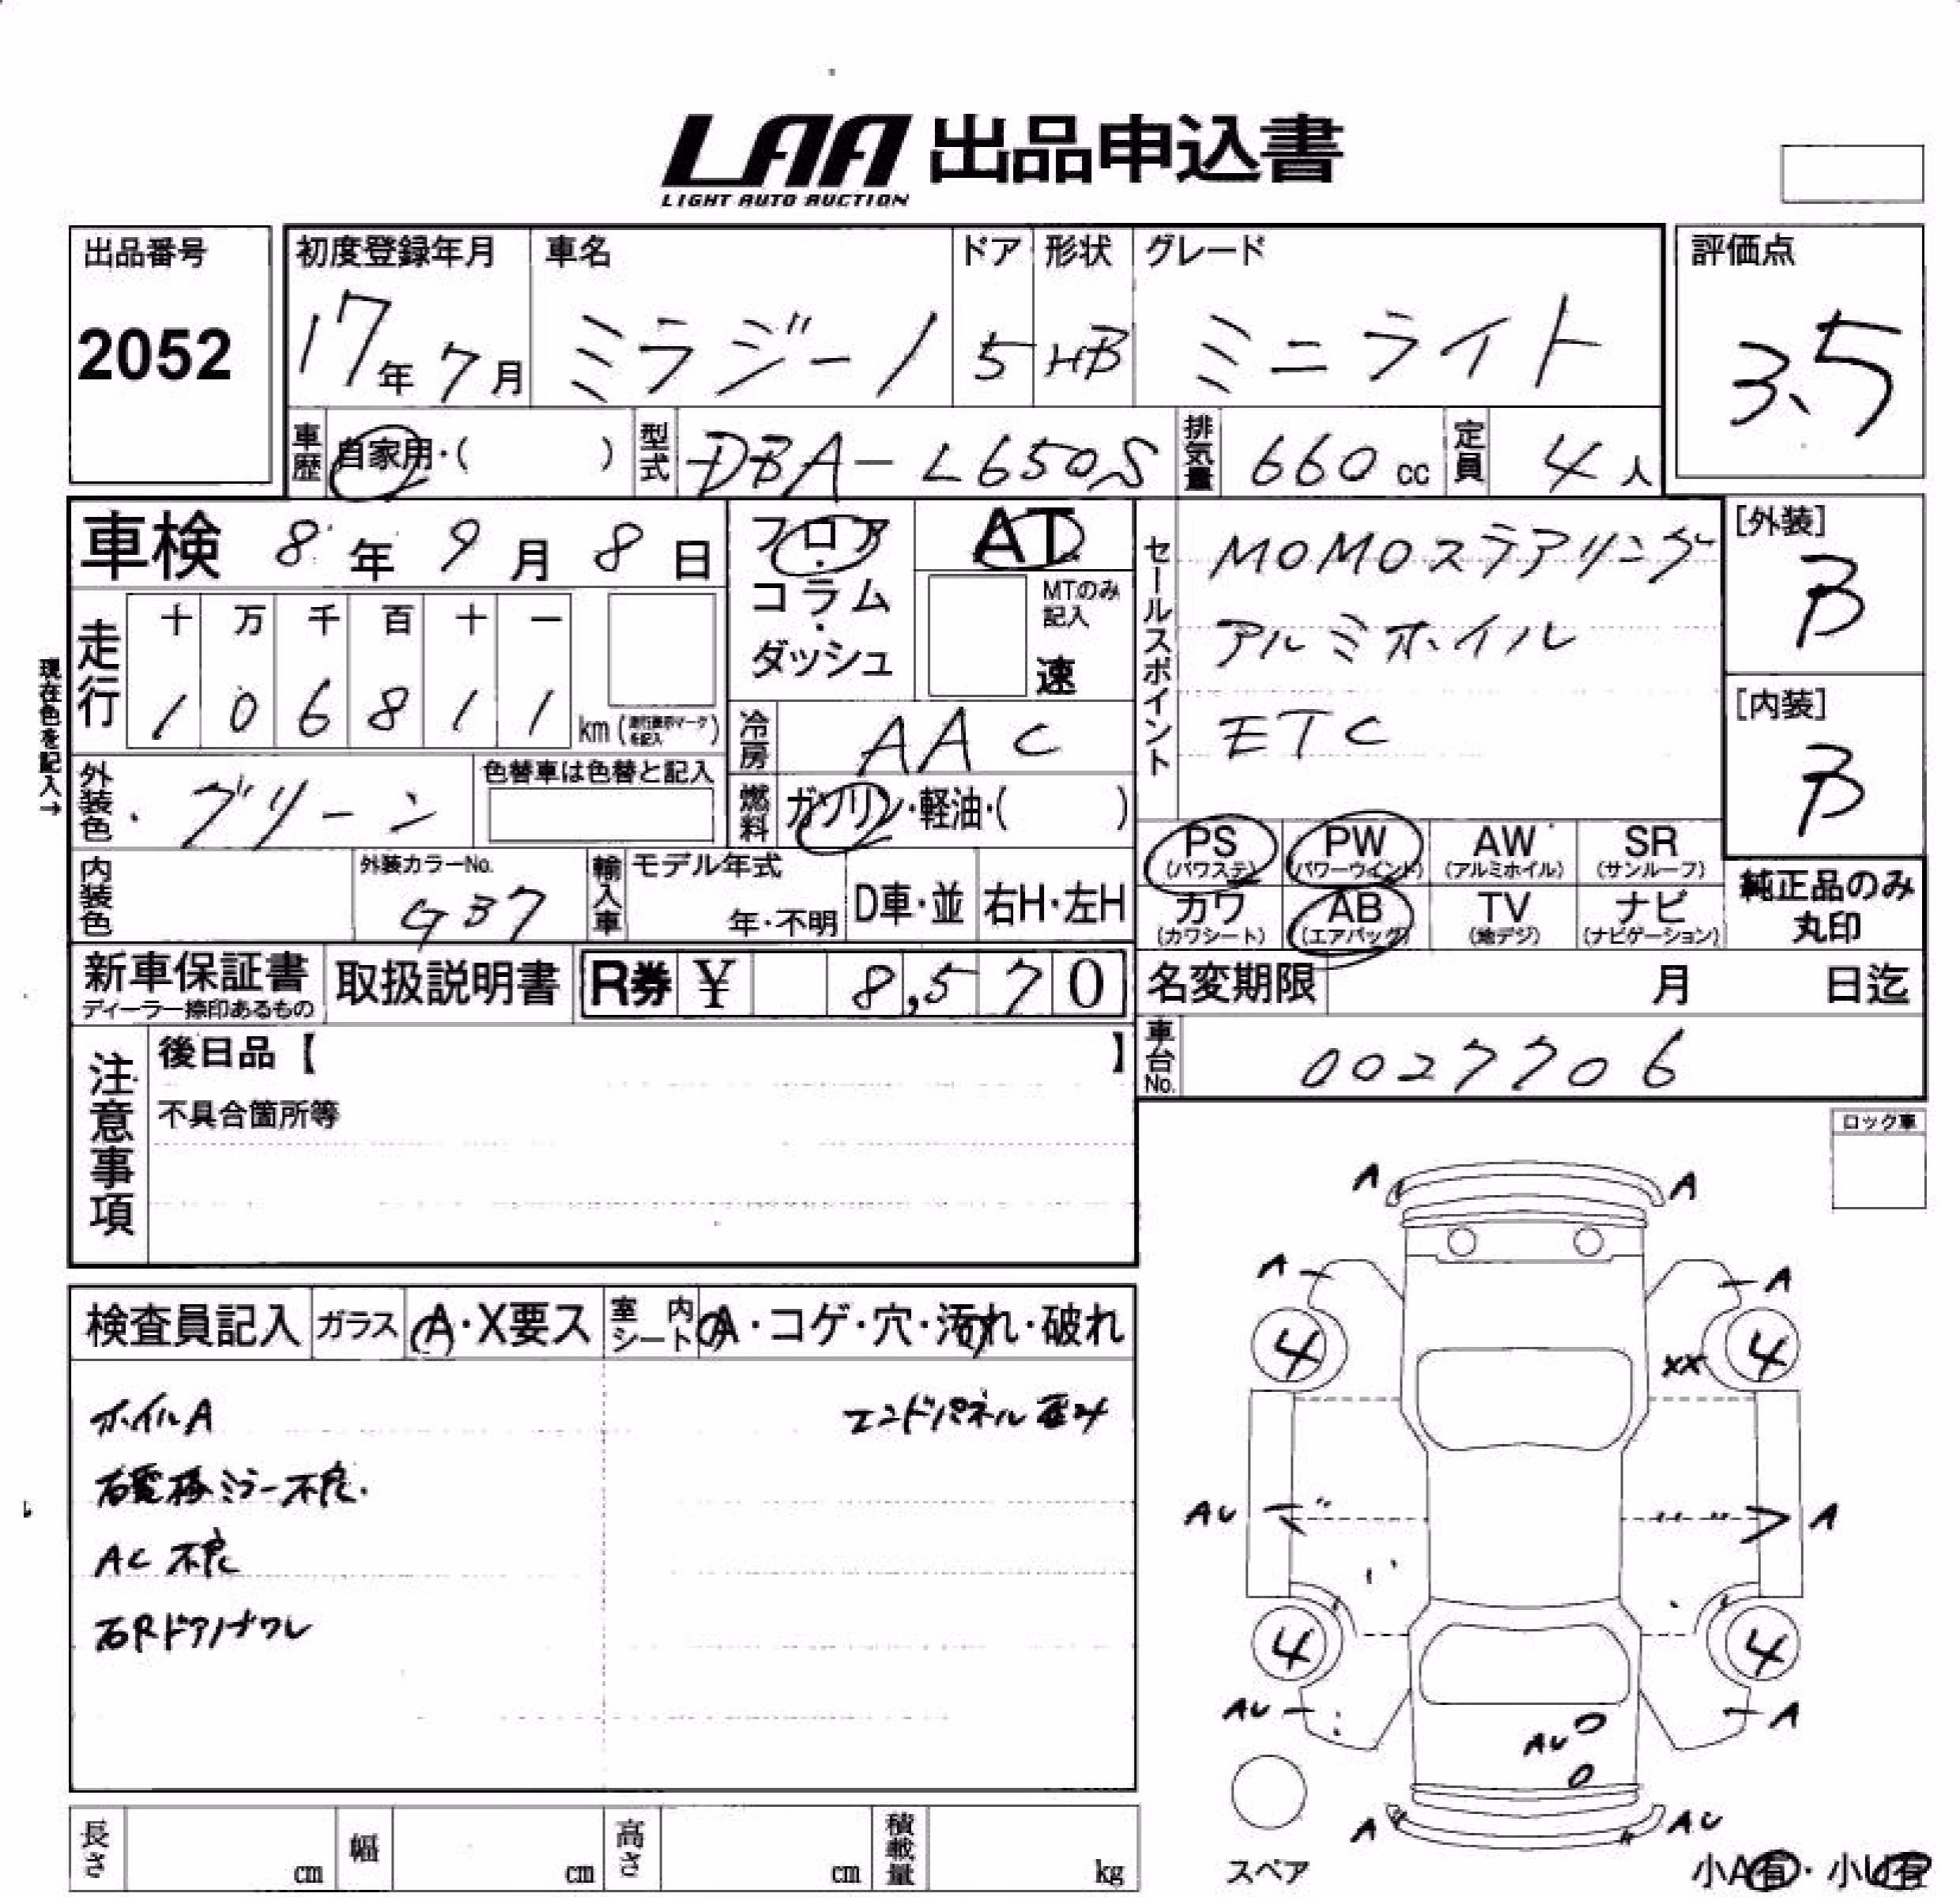 LAA 出品申込書
LIGHT AUTO AUCTION
出品番号
2052
初度登録年月
17年 7月
車名
ミラジーノ
ドア
5
形状
HB
グレード
ミニライト
評価点
3.5
車歴 自家用・( )
型式 DBA-L650S
排気量 660 cc
定員 4人
車検 8年 9月 8日
フロア・コラム・ダッシュ
AT
MTのみ記入
速
セールスポイント
MOMOステアリング
アルミホイル
ETC
[外装]
B
[内装]
B
現在色を記入→
走行
十 万 千 百 十 一
1 0 6 8 1 1 km (走行表示マークを記入)
冷房 AAC
外装色 グリーン
色替車は色替と記入
燃料 ガソリン・軽油・( )
PS (パワステ)
PW (パワーウインド)
AW (アルミホイル)
SR (サンルーフ)
カワ (カワシート)
AB (エアバッグ)
TV (地デジ)
ナビ (ナビゲーション)
純正品のみ
丸印
内装色
外装カラーNo.
G37
輸入車
モデル年式
年・不明
D車・並
右H・左H
新車保証書
ディーラー捺印あるもの
取扱説明書
R券 ¥ 8,570
名変期限 月 日迄
車台No. 0027706
注意事項
後日品【 】
不具合箇所等
ロック車
検査員記入
ガラス A・X要ス
室内シート A・コゲ・穴・汚れ・破れ
ホイルA
エンドパネル歪み
右電格ミラー不良.
AC 不良
右Rドアノブワレ
A A
A A
4 XX 4
AU A
4 4
AU A
AU
A AU
スペア
小A有・小U有
長さ cm
幅 cm
高さ cm
積載量 kg